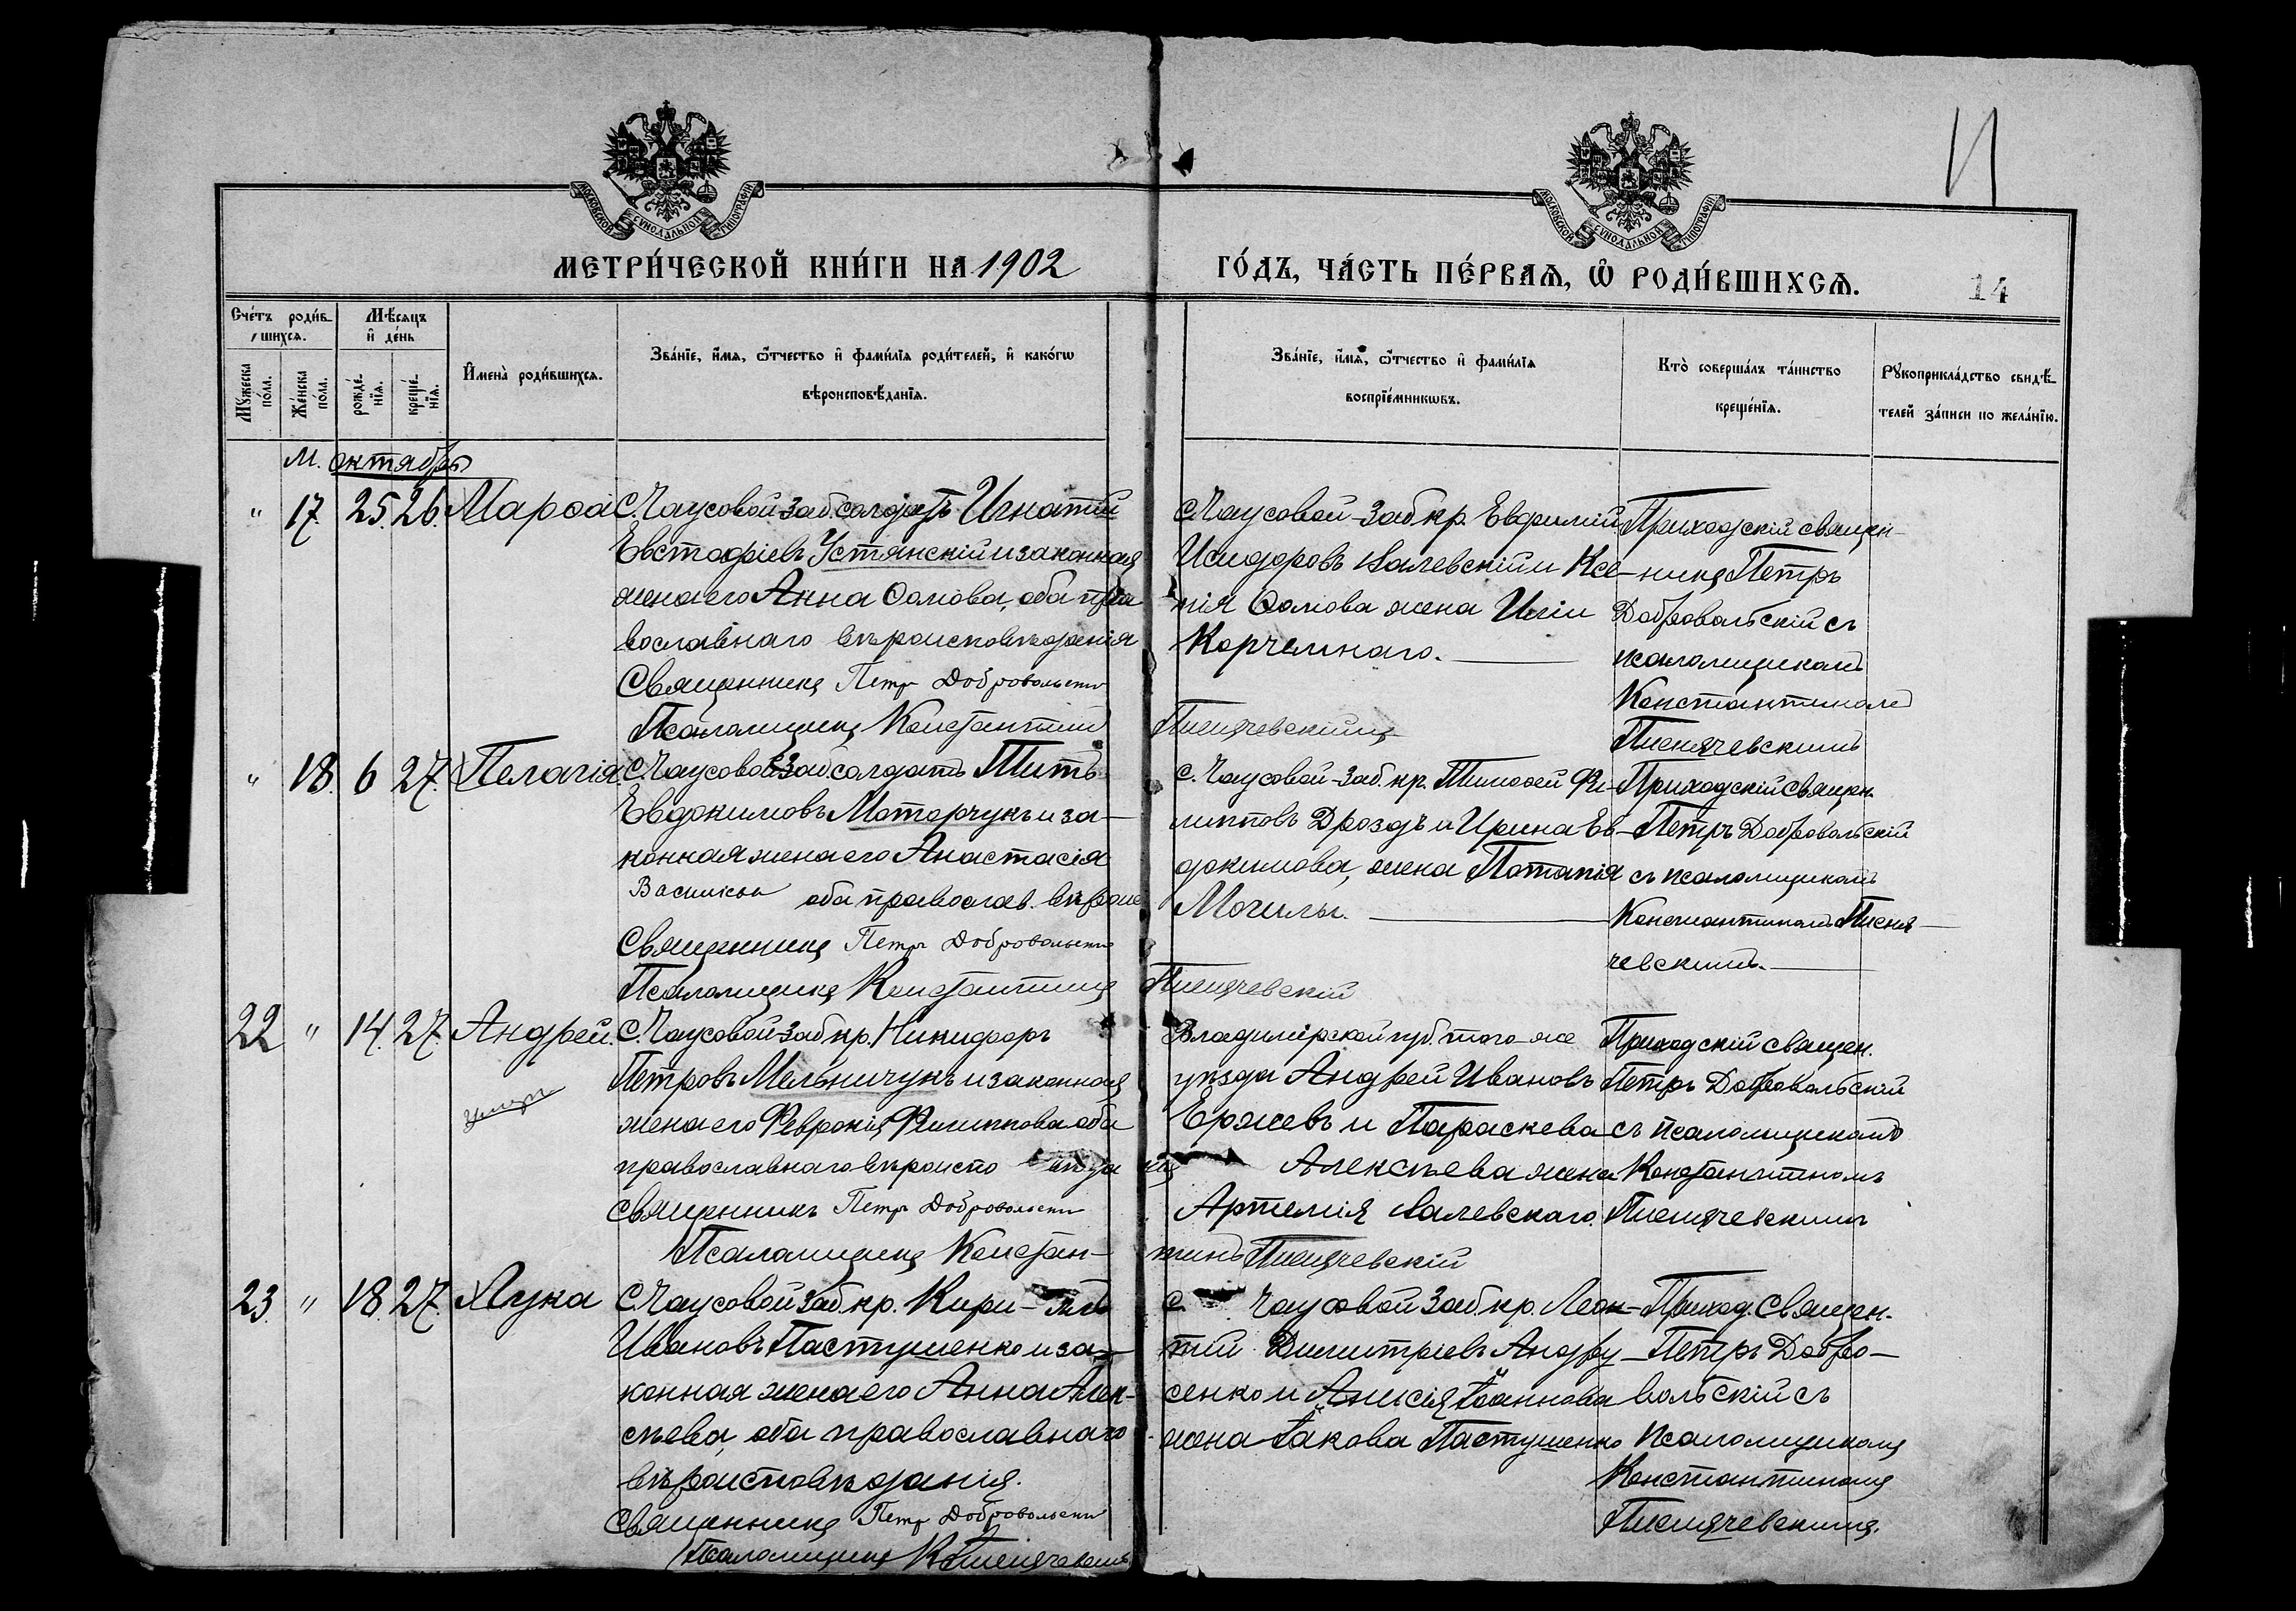 11
МОСКОВСКОЙ СѴНОДАЛЬНОЙ ТИПОГРАФІИ
МОСКОВСКОЙ СѴНОДАЛЬНОЙ ТИПОГРАФІИ
МЕТРИ́ЧЕСКОЙ КНИ́ГИ НА 1902 ГО́ДЪ, ЧА́СТЬ ПЕ́РВАѦ, Ѽ РОДИ́ВШИХСѦ.
14
Сче́тъ роди́в-
шихсѧ.
Мꙋ́жеска по́ла.
Же́нска по́ла.
Мѣ́сѧцъ и де́нь
рожде́-нїѧ.
креще́-нїѧ.
И҆мена̀ роди́вшихсѧ.
Зва́нїе, и҆́мѧ, ѻ҆́тчество и҆ фами́лїѧ роди́телей, и҆ како́гѡ
вѣроисповѣ́данїѧ.
Зва́нїе, и҆́мѧ, ѻ҆́тчество и҆ фами́лїѧ
воспрїе́мникѡвъ.
Кто̀ соверша́лъ та́инство
креще́нїѧ.
Рꙋкоприкла́дство свидѣ́-
телей за́писи по жела́нїю.
М. октябрь
" 17. 25. 26. Марѳа
С. Чаусовой-Заб. солдатъ Игнатій
Евстафіевъ Устянскій и законная
жена его Анна Ѳомова, оба пра
вославнаго вѣроисповѣданія
Священникъ Петръ Добровольскій
Псаломщикъ Константинъ Пненячевскій
С. Чаусовой-Заб. кр. Евфимій
Исидоровъ Валевскій и Ксе-
нія Ѳомова жена Иліи
Корчемнаго.
Приходскій священ-
никъ Петръ
Добровольскій съ
псаломщикомъ
Константиномъ
Пненячевскимъ
" 18. 6 27. Пелагія.
С. Чаусовой Заб. солдатъ Титъ
Евдокимовъ Моторчукъ и за-
конная жена его Анастасія
оба православ. вѣроис
Священникъ Петръ Добровольскій
Псаломщикъ Константинъ Пненячевскій
С. Чаусовой-Заб. кр. Тимоѳей Фи-
липповъ Дроздъ и Ирина Ев-
докимова, жена Потапія
Могилы.
Приходскій священ.
Петръ Добровольскій
съ псаломщикомъ
Константиномъ Пненя-
чевскимъ.
22 " 14. 27. Андрей.
умеръ
С. Чаусовой-Заб кр. Никифоръ
Петровъ Мельничукъ и законная
жена его Февронія Филиппова оба
православнаго вѣроиспо вѣда нія
Священникъ Петръ Добровольскій
Псаломщикъ Констан-
тинъ Пненячевскій
Владимірской губ. того-же
уѣзда Андрей Ивановъ
Ержевъ и Параскева
Алексѣева жена
Артемія Валевскаго.
Приходскій священ.
Петръ Добровольскій
съ псаломщикомъ
Константиномъ
Пненячевскимъ
23. " 18. 27. Лука
С. Чаусовой Заб. кр. Кири-
Ивановъ Пастушенко и за-
конная жена его Анна Алек-
сѣева, оба православнаго
вѣроисповѣданія.
Священникъ Петръ Добровольскій
Псаломщикъ К. Пненячевскій
С. Чаусовой Заб. кр. Леон-
тій Димитріевъ Андру-
сенко и Анисія Іоаннова
жена Іакова Пастушенко
Приход. священ.
Петръ Добро-
вольскій съ
псаломщикомъ
Константиномъ
Пненячевскимъ.